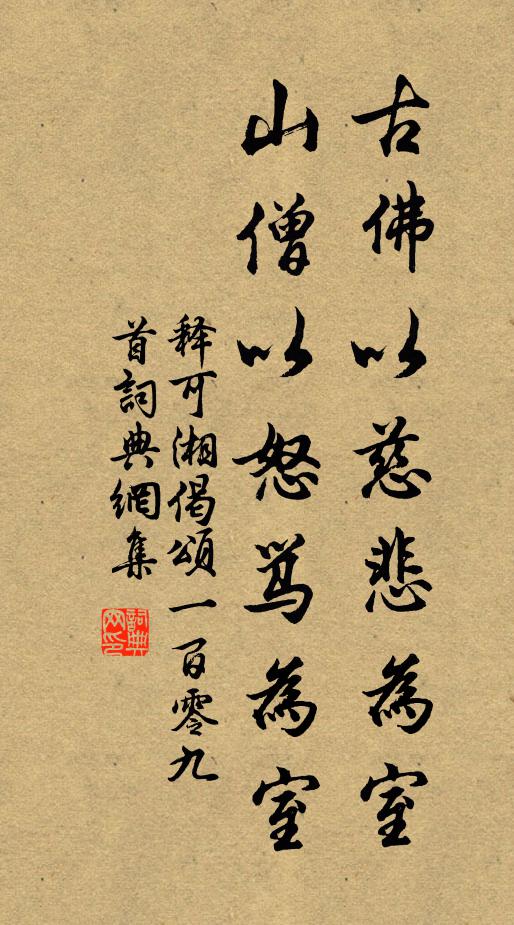 古佛以慈悲為室
山僧以怒骂為室
释可湘偈頌一百零九
首詞典網集
詞典
网印